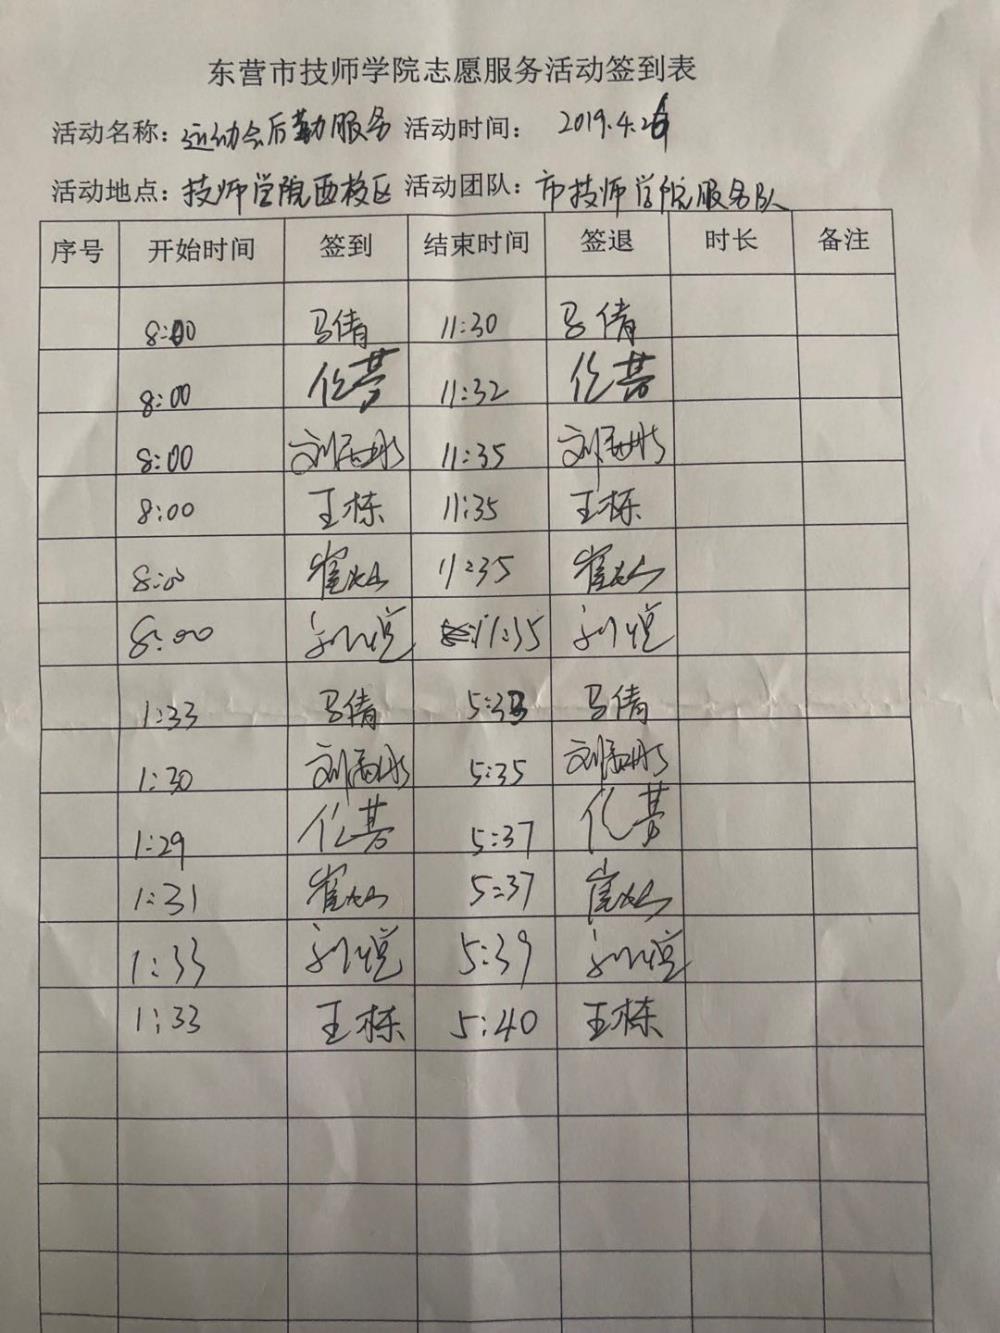 东营市技师学院志愿服务活动签到表
活动名称：运动会后勤服务 活动时间： 2019.4.26
活动地点：技师学院西校区 活动团队：市技师学院服务队
序号 开始时间 签到 结束时间 签退 时长 备注
8:00 马倩 11:30 马倩
8:00 11:32
8:00 11:35
8:00 王栋 11:35 王栋
8:00 11:35
8:00 11:35
1:33 马倩 5:33 马倩
1:30 5:35
1:29 5:37
1:31 5:37
1:33 5:39
1:33 王栋 5:40 王栋